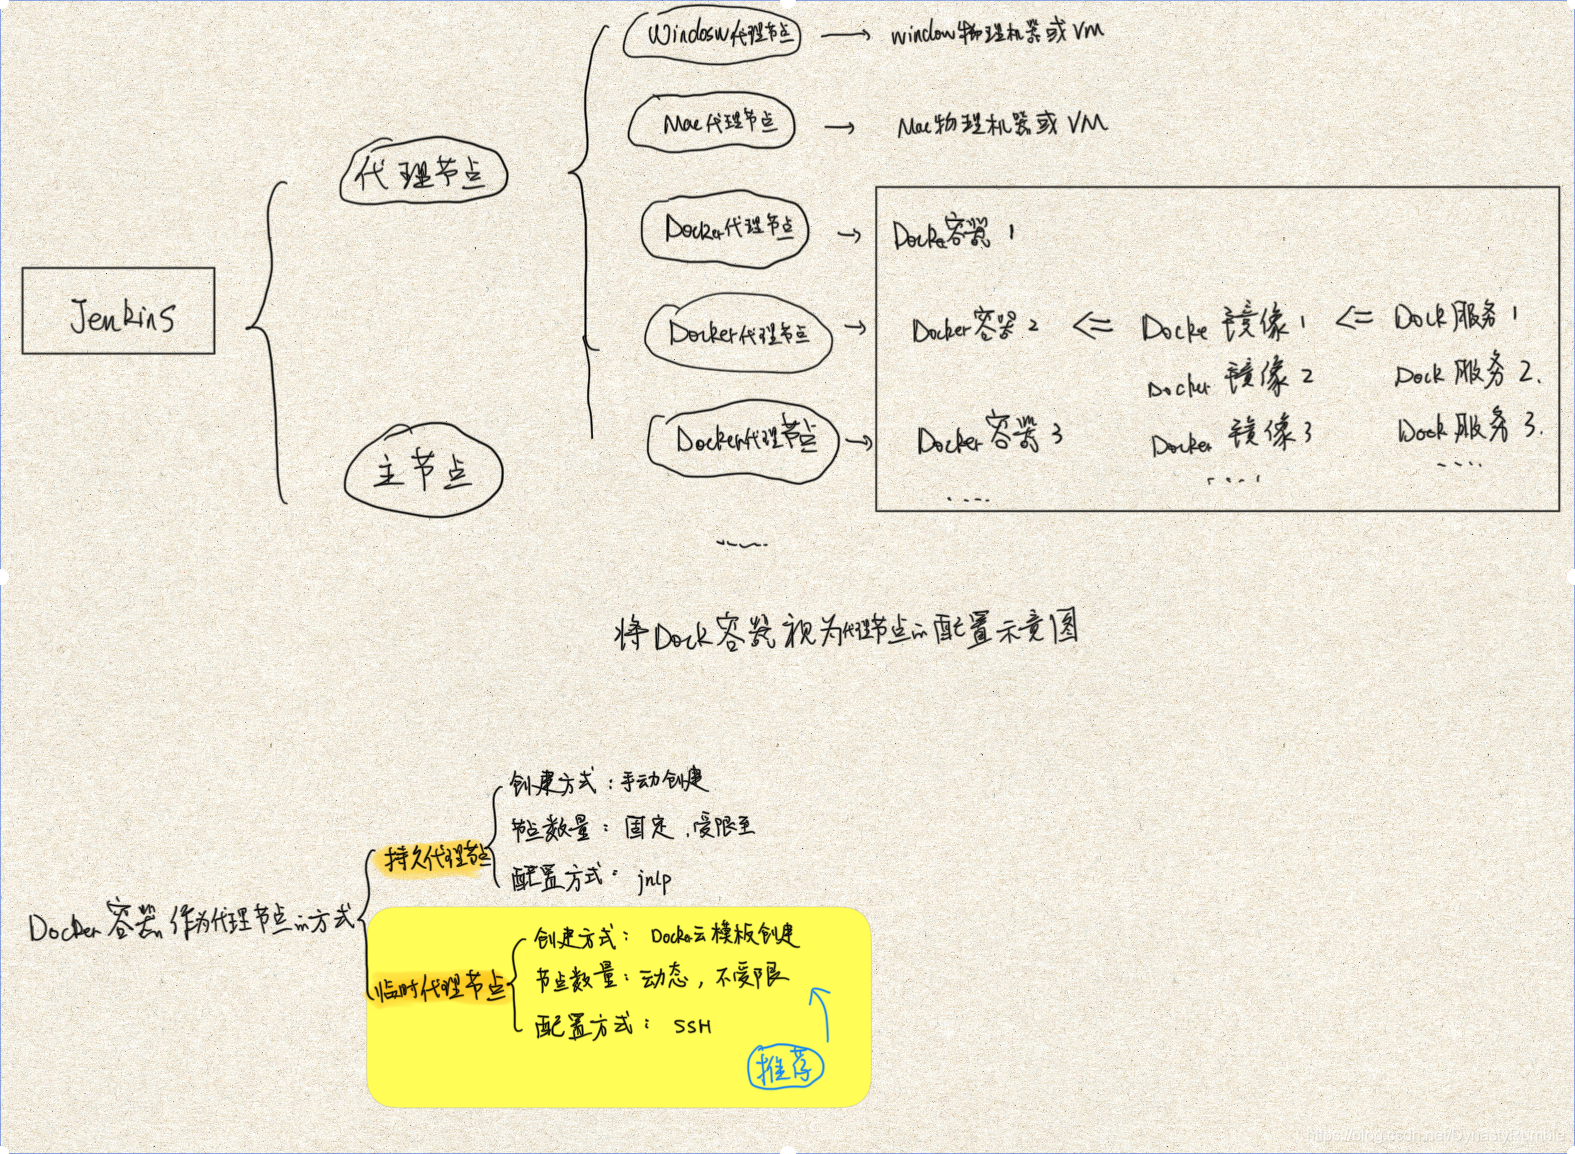 Windosw代理节点 → window物理机器或VM
Mac代理节点 → Mac物理机器或VM
代理节点
Docker代理节点 → Docke容器 1
Jenkins
Docker代理节点 → Docker容器 2 <= Docke 镜像 1 <= Dock服务 1
Docker 镜像 2 Dock 服务 2.
Docker代理节点 → Docker 容器 3 Docker 镜像 3 Dock 服务 3.
主节点
将Dock容器视为代理节点的配置示意图
创建方式：手动创建
节点数量：固定，受限至
持久代理节点
配置方式：jnlp
Docker容器作为代理节点的方式
创建方式：Docker云模板创建
节点数量：动态，不受限
临时代理节点
配置方式：SSH
推荐
https://blog.csdn.net/DynastyRumble